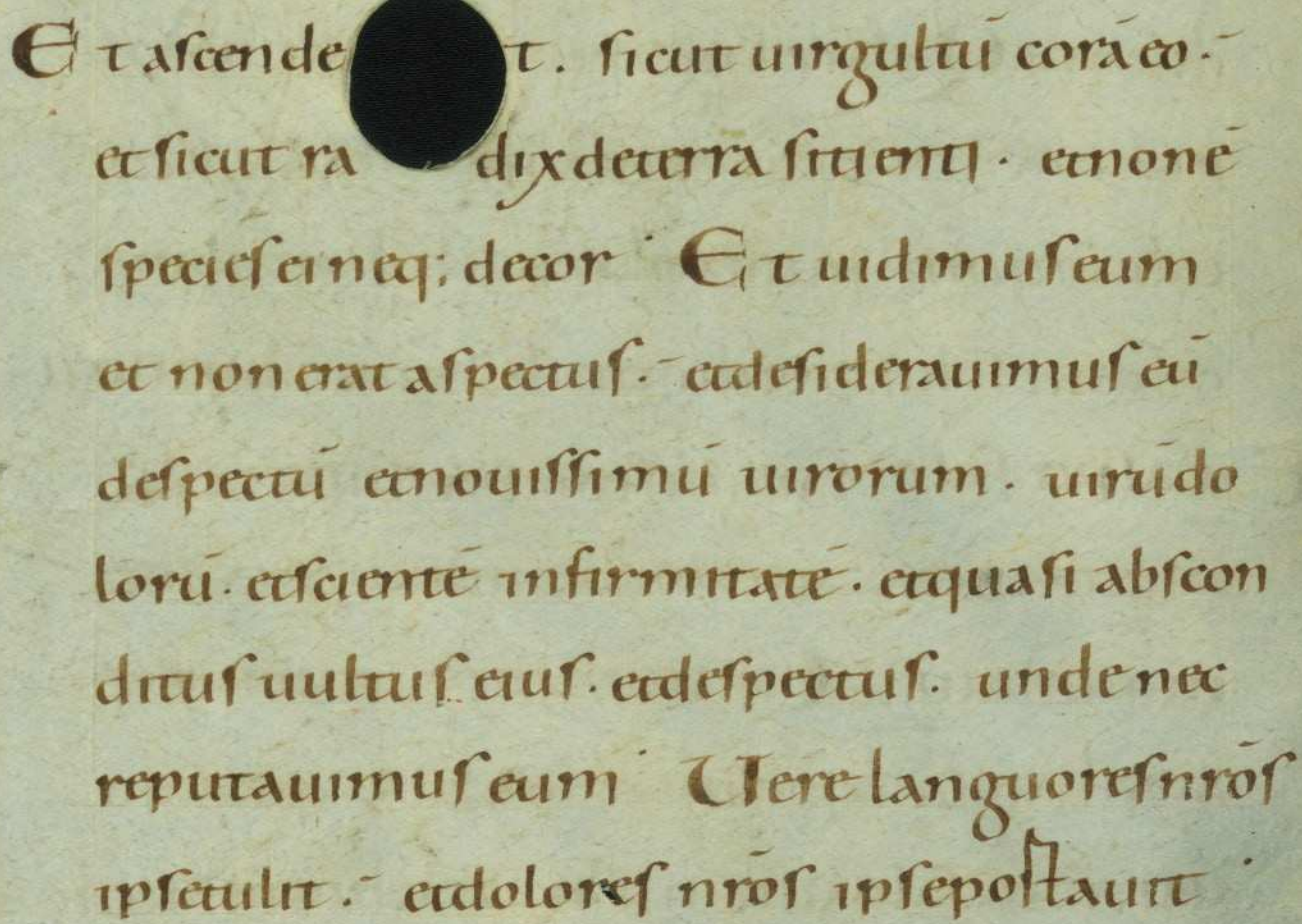 Et ascende t. sicut uirgultū corā eo.
et sicut ra dix de terra sitienti. et non ē
species ei neq; decor Et uidimus eum
et non erat aspectus. et desiderauimus eū
despectū et nouissimū uirorum. uirū do
lorū. et scientē infirmitatē. et quasi abscon
ditus uultus eius. et despectus. unde nec
reputauimus eum Uere languores nr̄os
ipse tulit. et dolores nr̄os ipse postauit